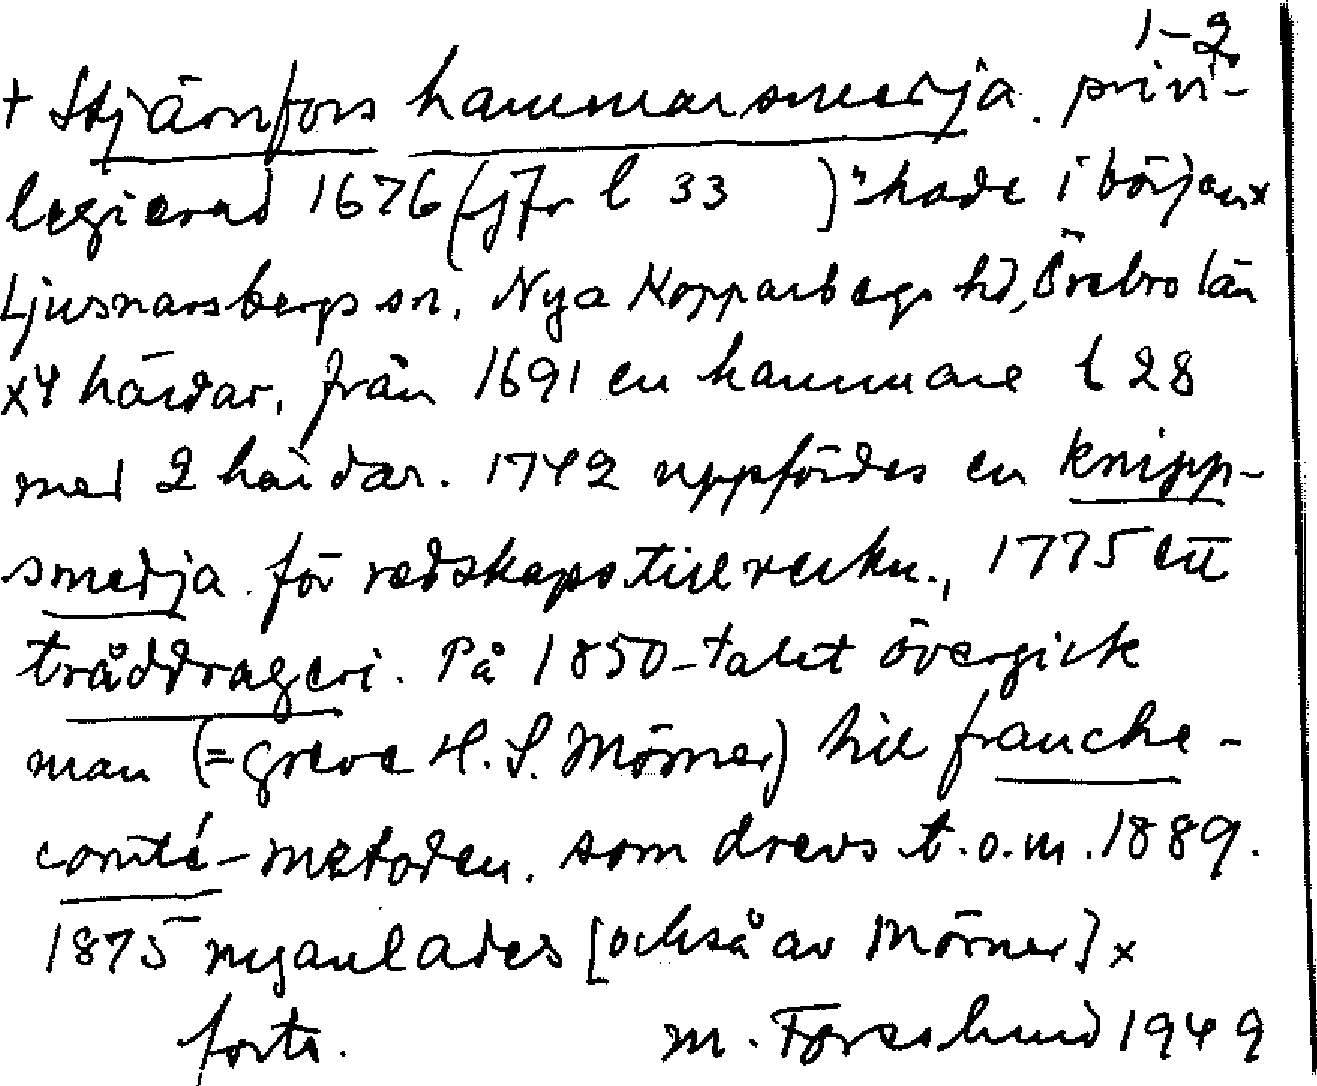 1-2
+ Stjärnfors hammarsmedja. privi-
legierad 1676 (jfr l 33 ) "hade i början x
Ljusnarsbergs sn, Nya Kopparbergs hd, Örebro län
x 4 härdar, från 1691 en hammare l 28
med 2 härdar. 1742 uppfördes en knipp-
smedja för redskapstillverkn., 1775 ett
tråddrageri. På 1850-talet övergick
man (= greve H. S. Mörner) till franche-
comté-metoden. som drevs t.o.m. 1889.
1875 nyanlades [också av Mörner] x
forts. M. Forsslund 1949